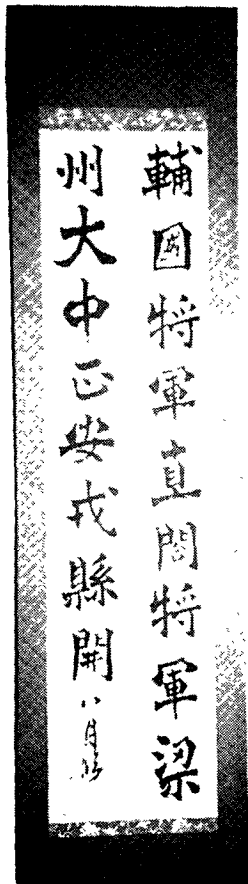 輔國將軍直閤將軍梁
州大中正安戎縣開
八月